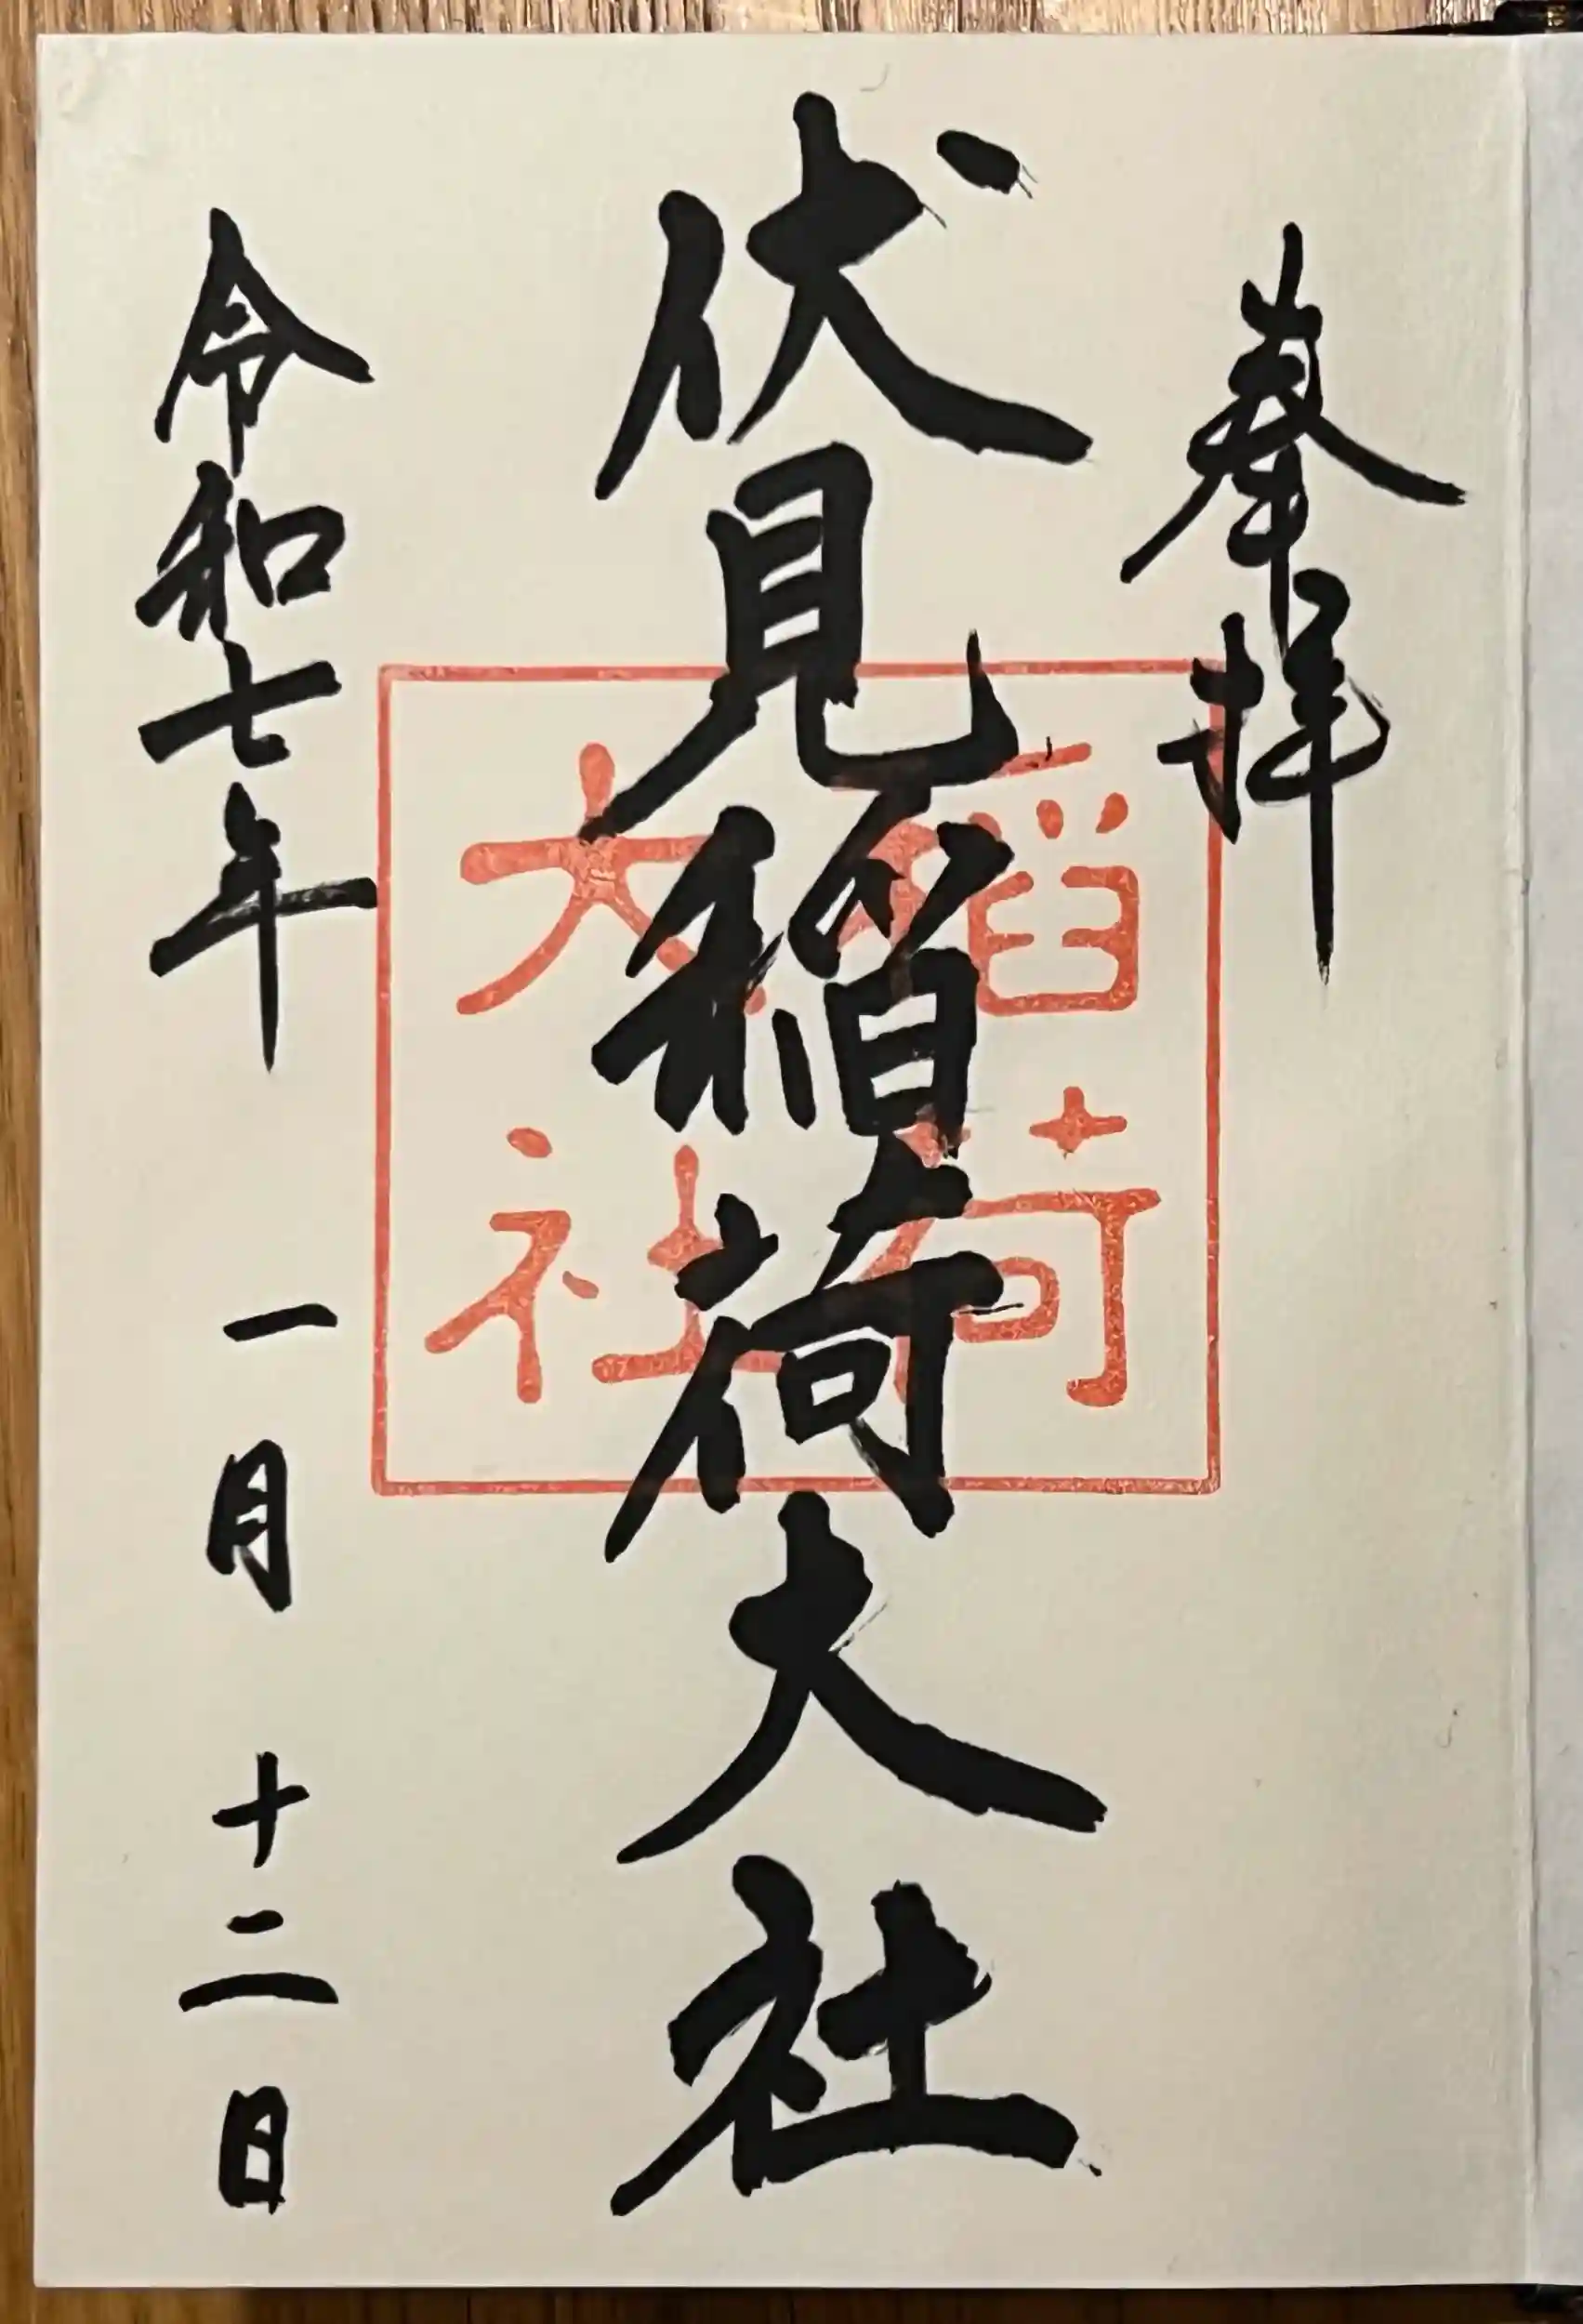 奉拝
伏見稲荷大社
稲荷
大社
令和七年一月十二日